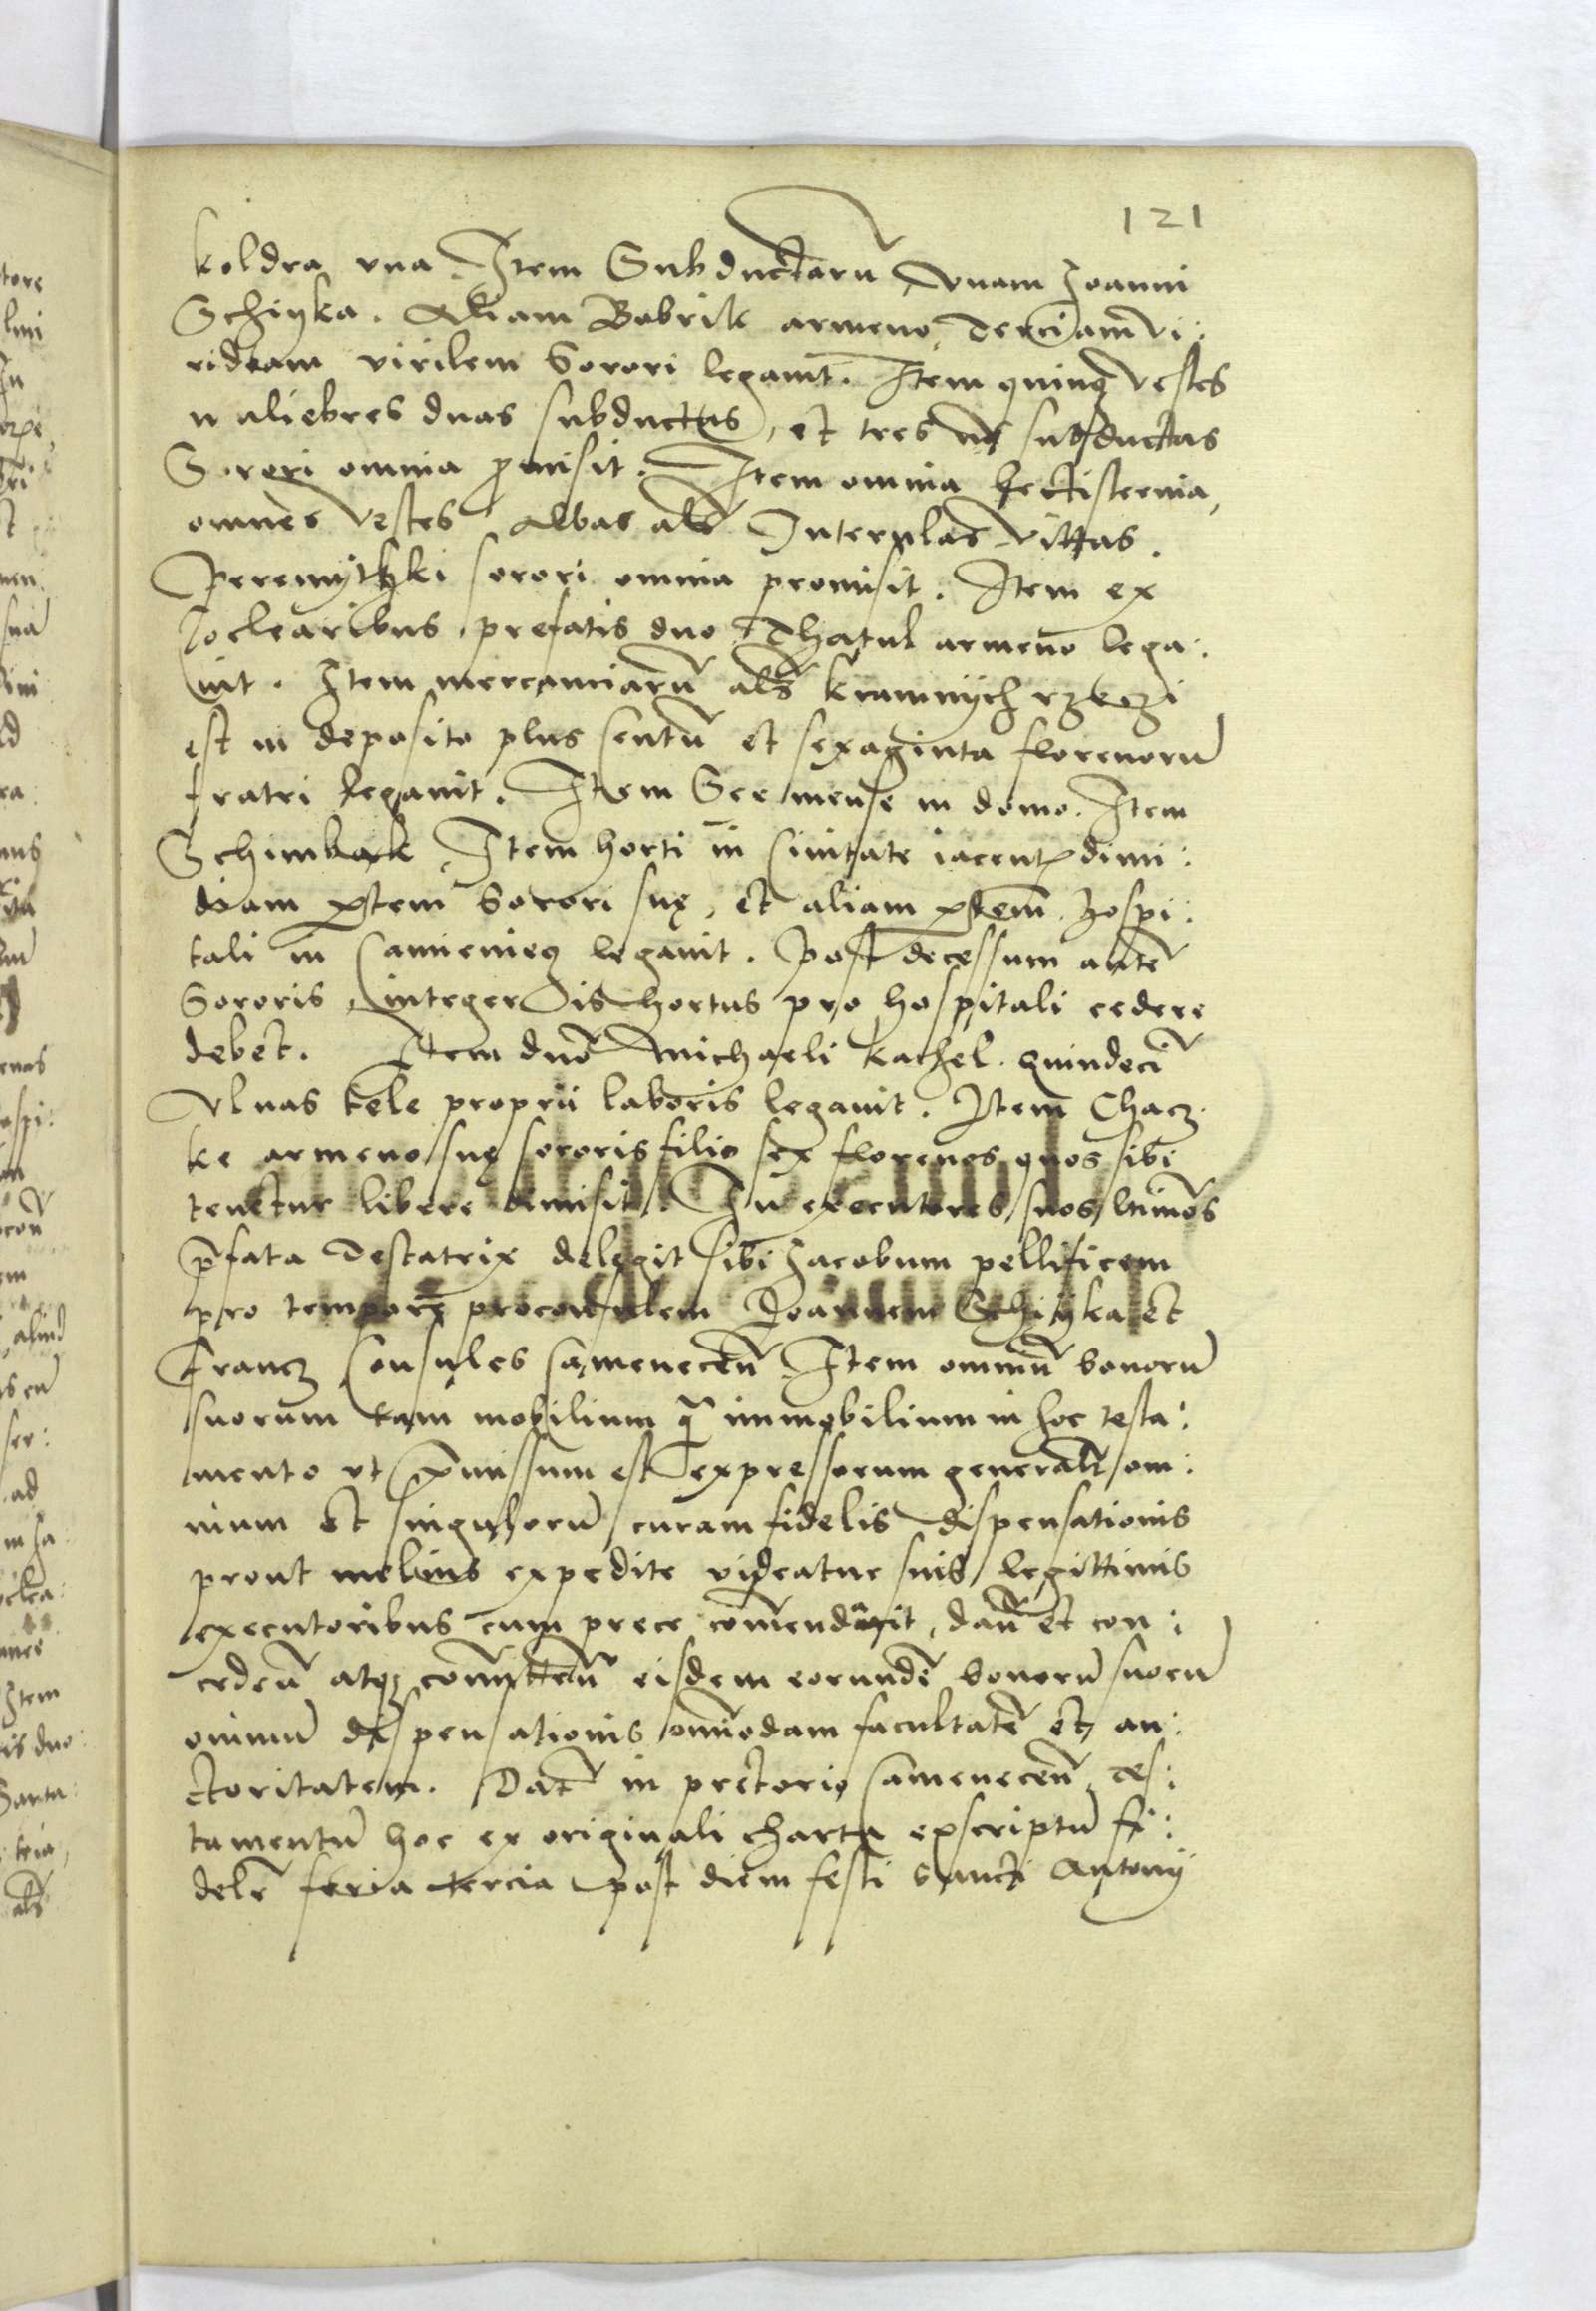 121
koldra vna. Item Subductarũ vnam Joanni
Schiyka. Aliam Bobrik armeno, Terciam vi:
rideam virilem Sorori legavit. Item quinq vestes
muliebres duas subductas, et tres nõ subductas
Sorori omnia ꝓmisit. Item omnia lectisternia,
omnes vestes albas als Interulas vittas.
Peremythki sorori omnia promisit. Item ex
Coclearibus prefatis duo Thatul armeno lega:
uit. Item mercanciarũ als kramnych rzeczi
est in deposito plus Centũ et sexaginta florenorũ
fratri legauit. Item See mense in domo. Item
Schimbark Item horti in Ciuitate iacentꝭ dimi:
diam ꝑtem Sorori suę, et aliam ꝑtem. hospi:
tali in Camieniecz legauit. Post decessum autẽ
Sororis integer is hortus pro hospitali cedere
debet. Item duõ Michaeli Kachel quindecĩ
Vlnas tele proprii laboris legauit. Item Chacz
ke armeno suę sororis filio sex florenos quos sibi
tenetur libere dimisit. In executores suos ltimõs
p̃fata Testatrix delegit sibi Jacobum pellificem
pro tempore proconsulem Joannem Schiyka et
Francz Consules Camenecen̄. Item omniũ bonorũ
suorum tam mobilium q̃ immobilium in hoc testa:
mento vt p̃missum est expressorum generalr̃ om:
nium et singulorũ curam fidelis dispensationis
prout melius expedite videatur suis legittimis
executoribus cum prece com̃endauit, dañ et con:
cedeñ atqȝ com̃itteñ eisdem eorundẽ bonorũ suorũ
omniũ dispensationis om̃imodam facultatẽ et au:
ctoritatem. Dat̃ in pretorio Cameneceñ Tes:
tamentũ hoc ex originali charta exscriptũ fi:
delr̃ feria tercia post diem festi Sancti Antonij